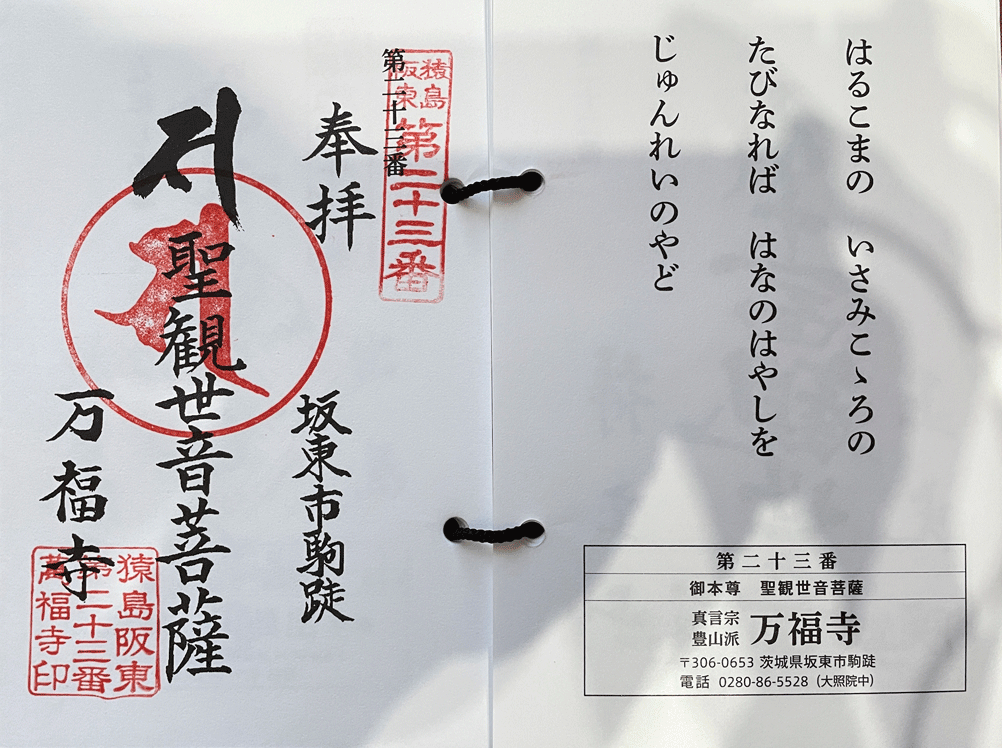 はるこまの　いさみこゝろの
たびなれば　はなのはやしを
じゅんれいのやど
第二十三番
御本尊　聖観世音菩薩
真言宗
豊山派
万福寺
〒306-0653 茨城県坂東市駒跿
電話 0280-86-5528（大照院中）
第二十三番
猿島
阪東
第二十三番
奉拝
坂東市駒跿
聖観世音菩薩
万福寺
猿島阪東
第二十三番
萬福寺印